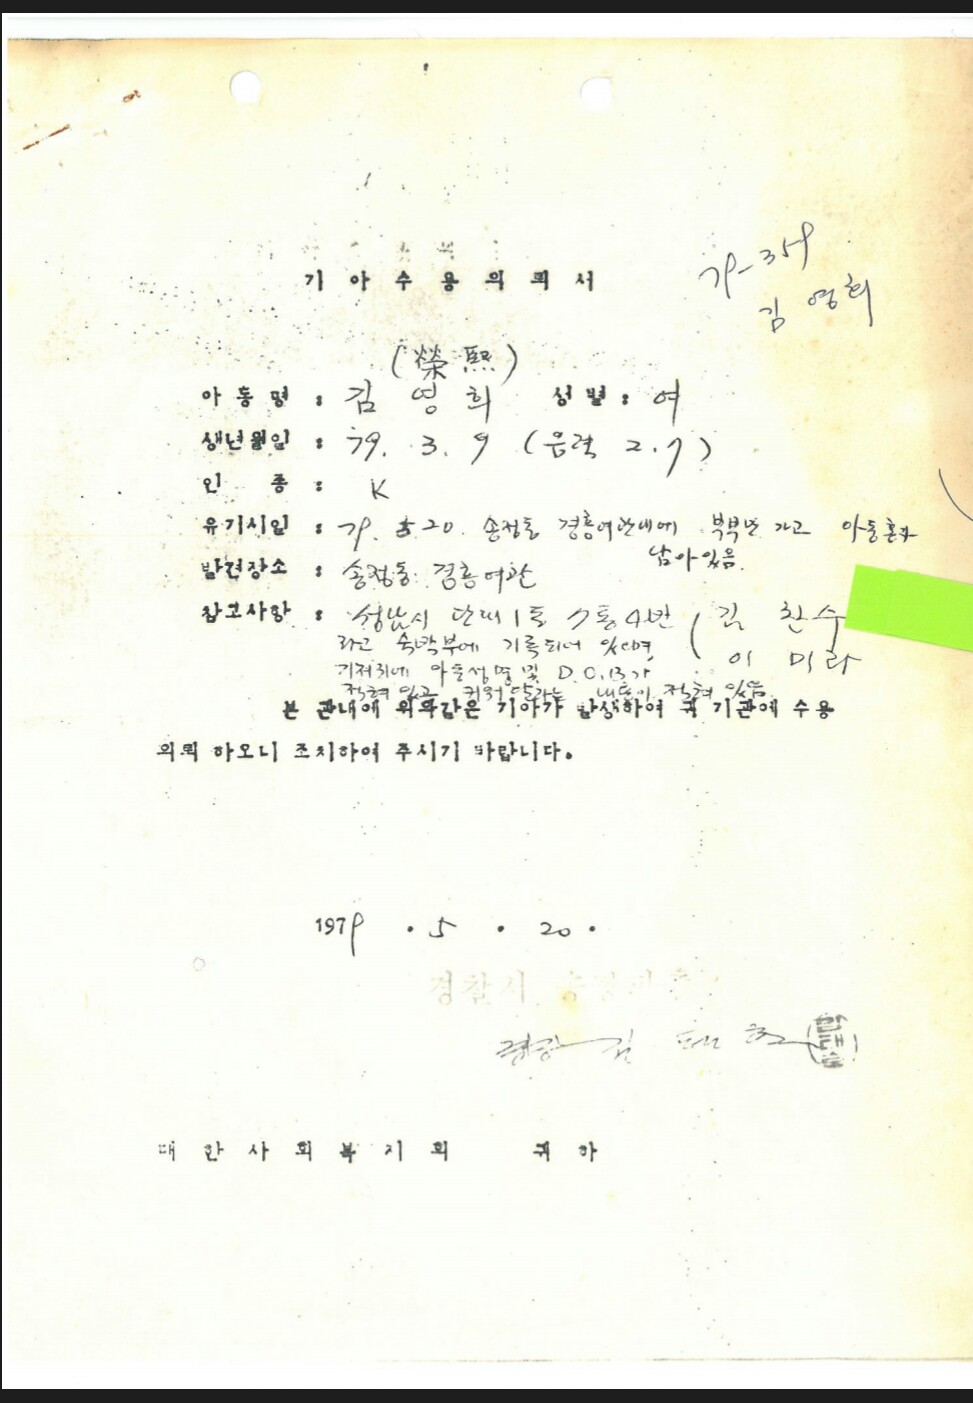 기 아 수 용 의 뢰 서
79-359
김 영희
(榮 熙)
아 동 명 : 김 영 희 성 별 : 여
생년월일 : 79. 3. 9 (음력 2.9)
인 종 : K
유기시일 : 79. 5. 20. 송정동 경흥여관내에 부부만 가고 아동혼자
남아있음.
발견장소 : 송정동 경흥여관
참고사항 : 성남시 단대1동 7통4반 ( 김 찬수
라고 숙박부에 기록되어 있으며, 이 미라
기저귀에 아동성명 및 D.O.B가
적혀있고 키워달라는 내용이 적혀 있음.
본 관내에 외와같은 기아가 발생하여 귀 기관에 수용
의뢰 하오니 조치하여 주시기 바랍니다.
1979 . 5 . 20 .
경찰서
경장 김
대 한 사 회 복 지 회 귀 하